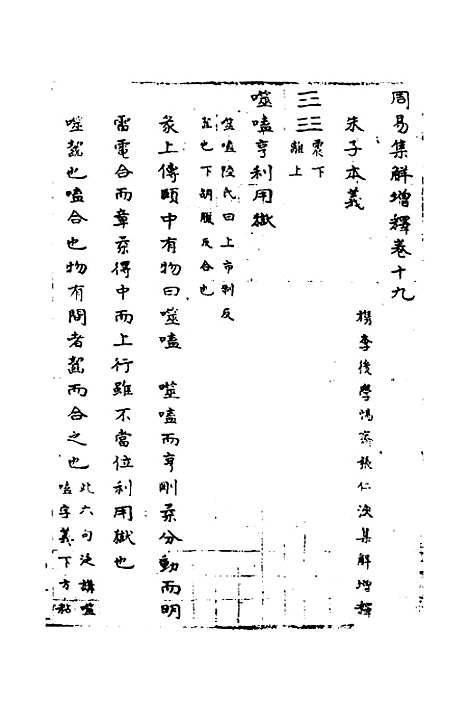 周易集解增釋卷十九
後學張仁浹集解增釋
朱子本義
震下
離上
噬嗑亨利用獄
噬嗑陸氏曰上市制反
噬也下胡臘反合也
彖上傳頤中有物曰噬嗑 噬嗑而亨剛柔分動而明
雷電合而章柔得中而上行雖不當位利用獄也
噬齧也嗑合也物有間者齧而合之也
此六句泛講噬
嗑字義下方粘